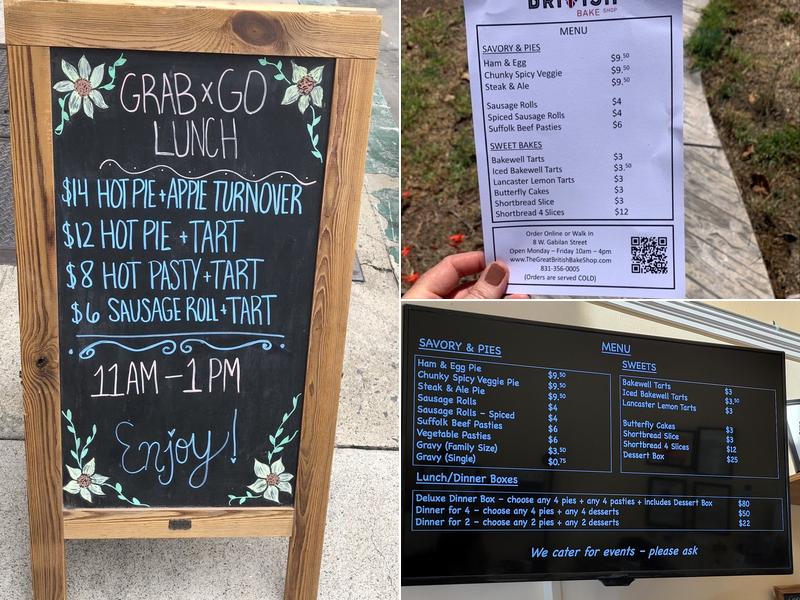 GRAB x GO
LUNCH
$14 HOT PIE + APPLE TURNOVER
$12 HOT PIE + TART
$8 HOT PASTY + TART
$6 SAUSAGE ROLL + TART
11 AM – 1 PM
Enjoy!
BRITISH
BAKE SHOP
MENU
SAVORY & PIES
Ham & Egg $9.50
Chunky Spicy Veggie $9.50
Steak & Ale $9.50
Sausage Rolls $4
Spiced Sausage Rolls $4
Suffolk Beef Pasties $6
SWEET BAKES
Bakewell Tarts $3
Iced Bakewell Tarts $3.50
Lancaster Lemon Tarts $3
Butterfly Cakes $3
Shortbread Slice $3
Shortbread 4 Slices $12
Order Online or Walk In
8 W. Gabilan Street
Open Monday – Friday 10am – 4pm
www.TheGreatBritishBakeShop.com
831-356-0005
(Orders are served COLD)
MENU
SAVORY & PIES
Ham & Egg Pie $9.50
Chunky Spicy Veggie Pie $9.50
Steak & Ale Pie $9.50
Sausage Rolls $4
Sausage Rolls – Spiced $4
Suffolk Beef Pasties $6
Vegetable Pasties $6
Gravy (Family Size) $3.50
Gravy (Single) $0.75
SWEETS
Bakewell Tarts $3
Iced Bakewell Tarts $3.50
Lancaster Lemon Tarts $3
Butterfly Cakes $3
Shortbread Slice $3
Shortbread 4 Slices $12
Dessert Box $25
Lunch/Dinner Boxes
Deluxe Dinner Box – choose any 4 pies + any 4 pasties + includes Dessert Box $80
Dinner for 4 – choose any 4 pies + any 4 desserts $50
Dinner for 2 – choose any 2 pies + any 2 desserts $22
We cater for events – please ask